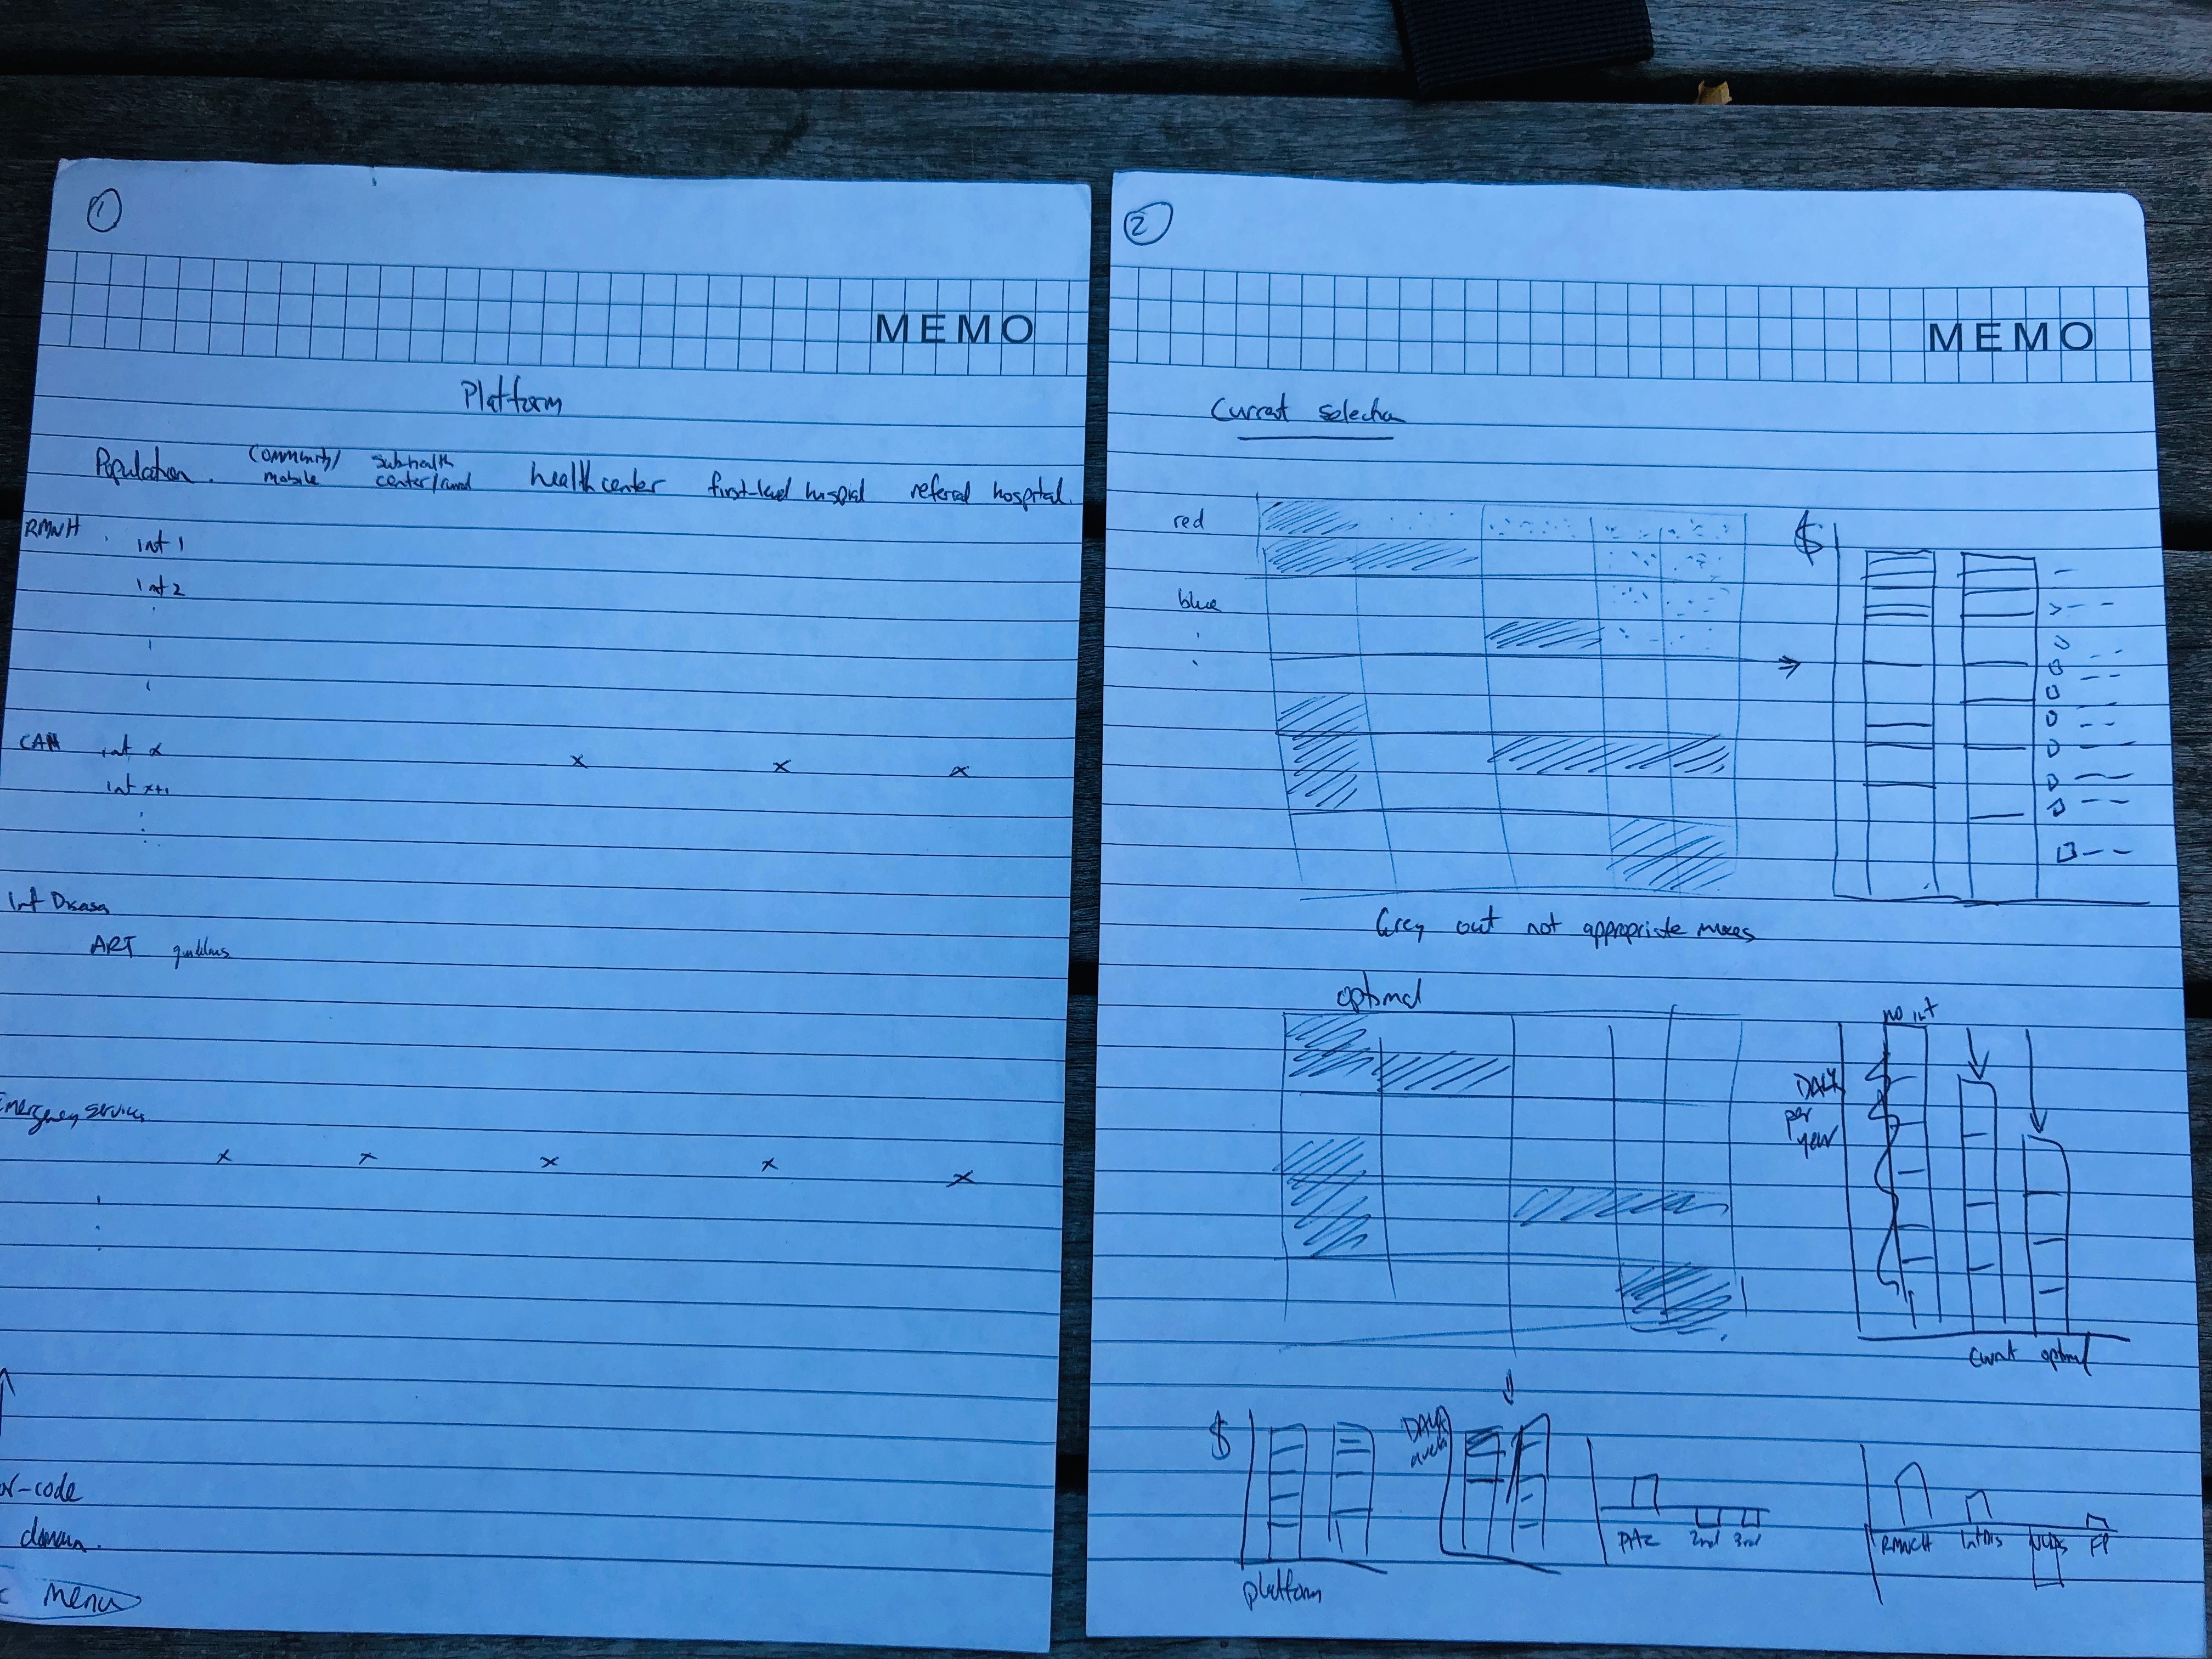 1
MEMO
Platform
Population. Community/ mobile subhealth center/ health center first-level hospital referral hospital.
RMNH
int 1
int 2
CAH int x x x x
int x+1
Inf Disease
ART guidelines
Emergency services
x x x x x
-code
domain.
Menu
2
MEMO
Current selection
red
blue
$
Grey out not appropriate
optimal
no int
DALYs
per
year
current optimal
$
DALYs
platform
PHC 2nd 3rd
RMNCH Inf Dis NCDs FP